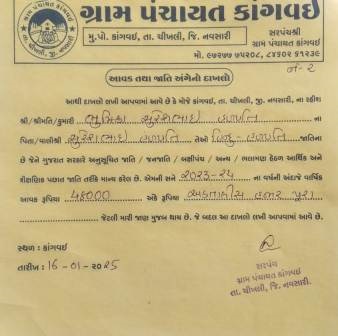 ગ્રામ પંચાયત કાંગવઈ
મુ.પો. કાંગવઈ, તા. ચીખલી, જિ. નવસારી
સરપંચશ્રી
ગ્રામ પંચાયત કાંગવઈ
મો. ૯૭૨૭૭ ૫૫૨૦૮, ૮૪૬૦૨ ૬૧૨૩૯
આવક તથા જાતિ અંગેનો દાખલો
આથી દાખલો લખી આપવામાં આવે છે કે મોજે કાંગવઈ, તા. ચીખલી, જી. નવસારી, ના રહીશ
શ્રી/શ્રીમતિ/કુમારી ભુમિકા સુરેશભાઈ હળપતિ ના
પિતા/વાલીશ્રી સુરેશભાઈ હળપતિ તેઓ હિન્દુ-હળપતિ જાતિના
છે જેને ગુજરાત સરકારે અનુસૂચિત જાતિ / જનજાતિ / બક્ષીપંચ / અન્ય / ભલામણ હેઠળ આર્થિક અને
શૈક્ષણિક પછાત જાતિ તરીકે માન્ય કરેલ છે. એમની સને 2023-24 ના વર્ષની અંદાજે વાર્ષિક
આવક રૂપિયા 48000 અંકે રૂપિયા અડતાલીસ હજાર પુરા
જેટલી મારી જાણ મુજબ થાય છે. જે બદલ આ દાખલો લખી આપવામાં આવે છે.
સ્થળ : કાંગવઈ
તારીખ : 16-01-૨૦25
સરપંચ
ગ્રામ પંચાયત કાંગવઈ
તા. ચીખલી, જિ. નવસારી.